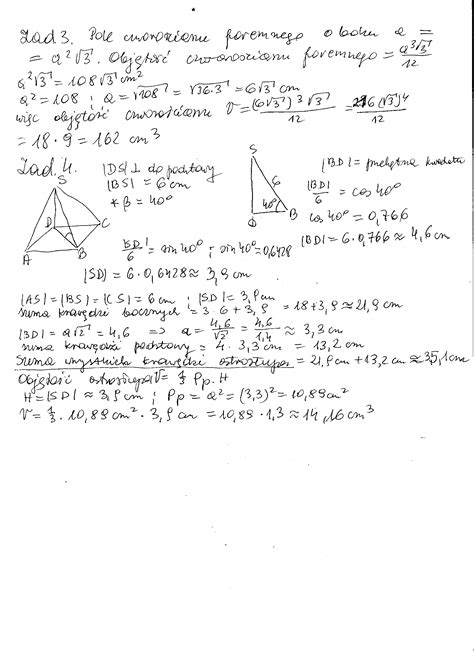 Zad 3. Pole czworościanu foremnego o boku a =
= a²√3. Objętość czworościanu foremnego = a³√3/12
a²√3 = 108√3 cm²
a² = 108 ; a = √108 = √36·3 = 6√3 cm
więc objętość czworościanu V = (6√3)³√3/12 = 216(√3)⁴/12
= 18·9 = 162 cm³
Zad. 4.
|DS| ⊥ do podstawy
|BS| = 6 cm
∢ β = 40°
S
D
C
A
B
S
6
40°
D
B
|BD| = przekątna kwadratu
|BD|/6 = cos 40°
cos 40° = 0,766
|BD| = 6·0,766 ≈ 4,6 cm
|SD|/6 = sin 40° ; sin 40° = 0,6428
|SD| = 6·0,6428 ≈ 3,9 cm
|AS| = |BS| = |CS| = 6 cm ; |SD| = 3,9 cm
suma krawędzi bocznych = 3·6 + 3,9 = 18 + 3,9 ≈ 21,9 cm
|BD| = a√2 = 4,6 ⇒ a = 4,6/√2 = 4,6/1,4 ≈ 3,3 cm
suma krawędzi podstawy = 4·3,3 cm = 13,2 cm
Suma wszystkich krawędzi ostrosłupa = 21,9 cm + 13,2 cm ≈ 35,1 cm
Objętość ostrosłupa V = 1/3 Pp·H
H = |SD| ≈ 3,9 cm ; Pp = a² = (3,3)² = 10,89 cm²
V = 1/3·10,89 cm²·3,9 cm = 10,89·1,3 ≈ 14,16 cm³